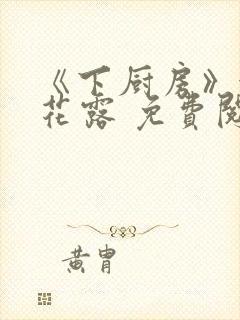 《下厨房》
花露 免費閱
黄胄